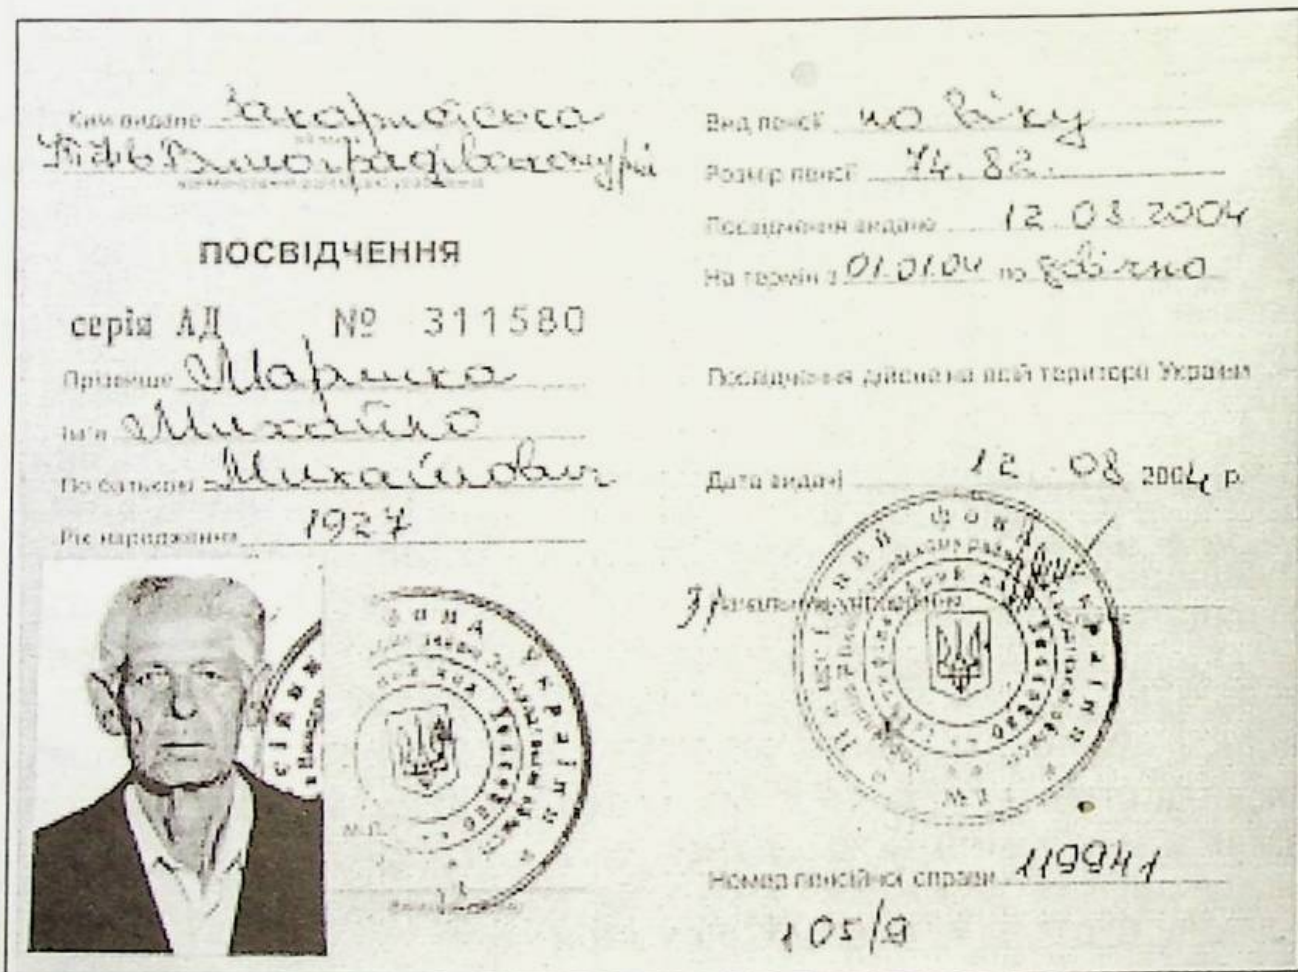 Ким видане Закарпатська
ПОСВІДЧЕННЯ
серія АД № 311580
Прізвище Маришка
Ім'я Михайло
По батькові Михайлович
Рік народження 1927
М.П.
Вид пенсії по віку
Розмір пенсії 74.82.
Посвідчення видано 12.08.2004
На термін з 01.01.04 по довічно
Посвідчення дійсне на всій території України
Дата видачі 12 08 2004 р.
З/ Начальник управління
Пенсійний фонд України
№ 1
Номер пенсійної справи 119941
105/9